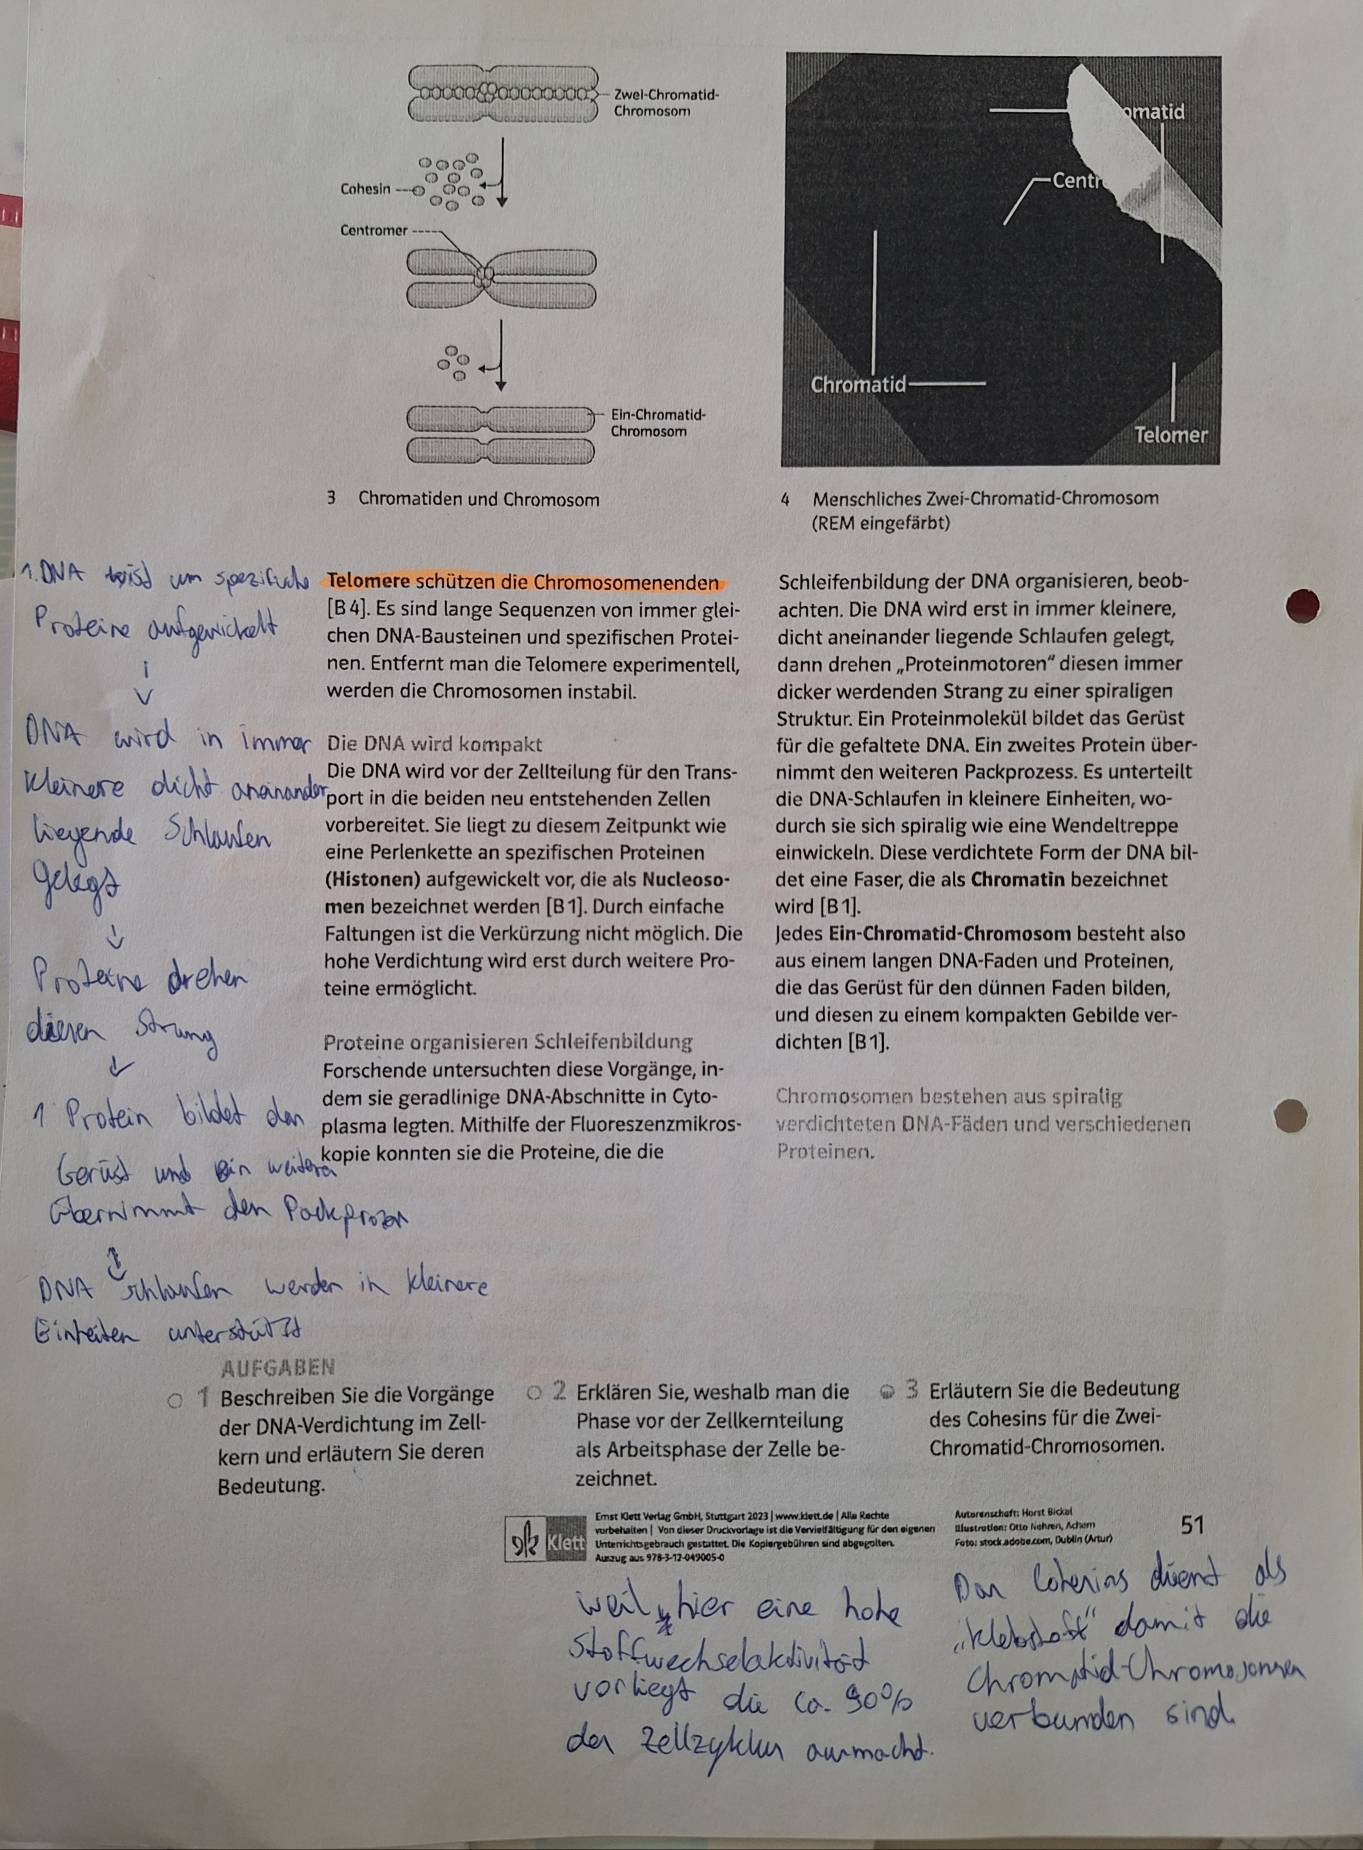 Zwei-Chromatid-
Chromosom
Cohesin
Centromer
Ein-Chromatid-
Chromosom
3 Chromatiden und Chromosom
omatid
Centr
Chromatid
Telomer
4 Menschliches Zwei-Chromatid-Chromosom
(REM eingefärbt)
1. DNA ist um spezifische
Proteine aufgewickelt
↓
DNA wird in immer
kleinere dicht aneinander
liegende Schlaufen
gelegt
↓
Proteine drehen
diesen Strang
↓
1 Protein bildet das
Gerüst und ein weiteres
übernimmt den Packprozess
↓
DNA schlaufen werden in kleinere
Einheiten unterstützt
Telomere schützen die Chromosomenenden
[B 4]. Es sind lange Sequenzen von immer glei-
chen DNA-Bausteinen und spezifischen Protei-
nen. Entfernt man die Telomere experimentell,
werden die Chromosomen instabil.
Die DNA wird kompakt
Die DNA wird vor der Zellteilung für den Trans-
port in die beiden neu entstehenden Zellen
vorbereitet. Sie liegt zu diesem Zeitpunkt wie
eine Perlenkette an spezifischen Proteinen
(Histonen) aufgewickelt vor, die als Nucleoso-
men bezeichnet werden [B 1]. Durch einfache
Faltungen ist die Verkürzung nicht möglich. Die
hohe Verdichtung wird erst durch weitere Pro-
teine ermöglicht.
Proteine organisieren Schleifenbildung
Forschende untersuchten diese Vorgänge, in-
dem sie geradlinige DNA-Abschnitte in Cyto-
plasma legten. Mithilfe der Fluoreszenzmikros-
kopie konnten sie die Proteine, die die
Schleifenbildung der DNA organisieren, beob-
achten. Die DNA wird erst in immer kleinere,
dicht aneinander liegende Schlaufen gelegt,
dann drehen „Proteinmotoren“ diesen immer
dicker werdenden Strang zu einer spiraligen
Struktur. Ein Proteinmolekül bildet das Gerüst
für die gefaltete DNA. Ein zweites Protein über-
nimmt den weiteren Packprozess. Es unterteilt
die DNA-Schlaufen in kleinere Einheiten, wo-
durch sie sich spiralig wie eine Wendeltreppe
einwickeln. Diese verdichtete Form der DNA bil-
det eine Faser, die als Chromatin bezeichnet
wird [B 1].
Jedes Ein-Chromatid-Chromosom besteht also
aus einem langen DNA-Faden und Proteinen,
die das Gerüst für den dünnen Faden bilden,
und diesen zu einem kompakten Gebilde ver-
dichten [B 1].
Chromosomen bestehen aus spiralig
verdichteten DNA-Fäden und verschiedenen
Proteinen.
AUFGABEN
1 Beschreiben Sie die Vorgänge
der DNA-Verdichtung im Zell-
kern und erläutern Sie deren
Bedeutung.
2 Erklären Sie, weshalb man die
Phase vor der Zellkernteilung
als Arbeitsphase der Zelle be-
zeichnet.
3 Erläutern Sie die Bedeutung
des Cohesins für die Zwei-
Chromatid-Chromosomen.
Klett
Ernst Klett Verlag GmbH, Stuttgart 2023 | www.klett.de | Alle Rechte
vorbehalten | Von dieser Druckvorlage ist die Vervielfältigung für den eigenen
Unterrichtsgebrauch gestattet. Die Kopiergebühren sind abgegolten.
Auszug aus 978-3-12-049005-0
Autorenschaft: Horst Bickel
Illustration: Otto Nehren, Achern
Foto: stock.adobe.com, Dublin (Artur)
51
weil hier eine hohe
Stoffwechselaktivität
vorliegt die ca. 90%
des Zellzyklus ausmacht.
Das Cohesins dient als
„Klebstoff“ damit die
Chromatid-Chromosomen
verbunden sind.